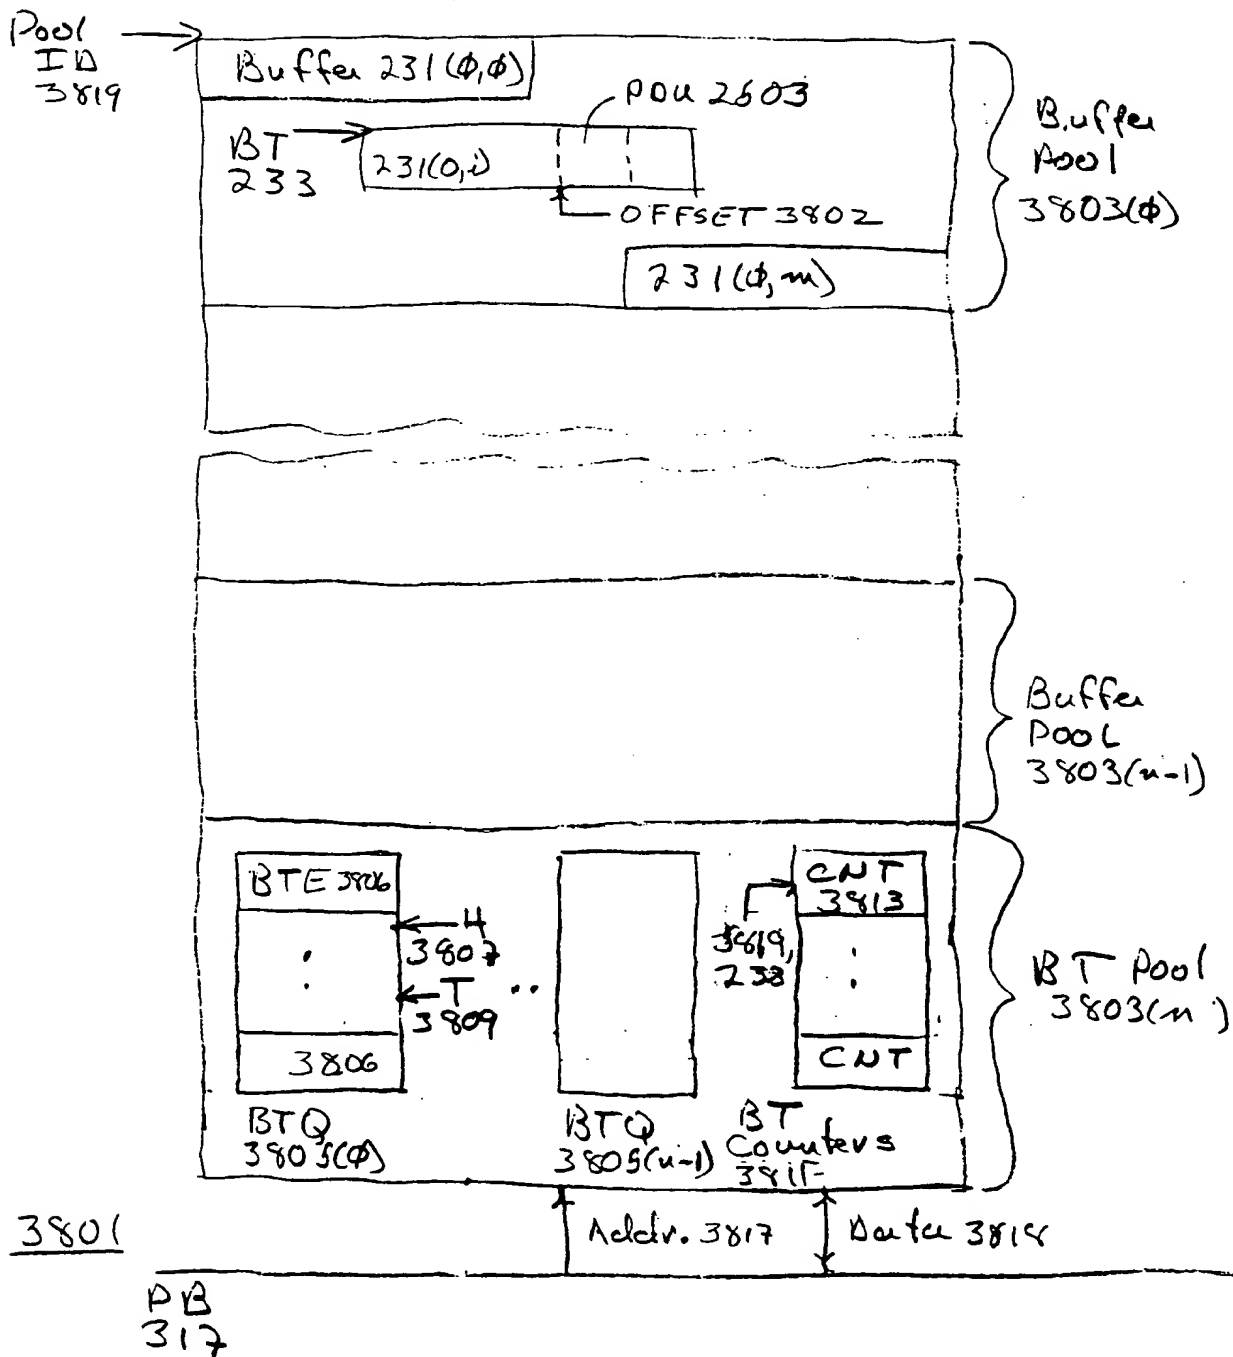 Pool
ID
3819
Buffer 231(φ,φ)
PDU 2603
BT
233
231(0,i)
OFFSET 3802
231(φ,m)
Buffer
Pool
3803(φ)
Buffer
POOL
3803(n-1)
BTE 3806
H
3807
T
3809
3806
..
3819,
233
CNT
3813
CNT
BT Pool
3803(n)
BTQ
3805(φ)
BTQ
3805(n-1)
BT
Counters
Addr. 3817
Data 3818
3801
PB
317